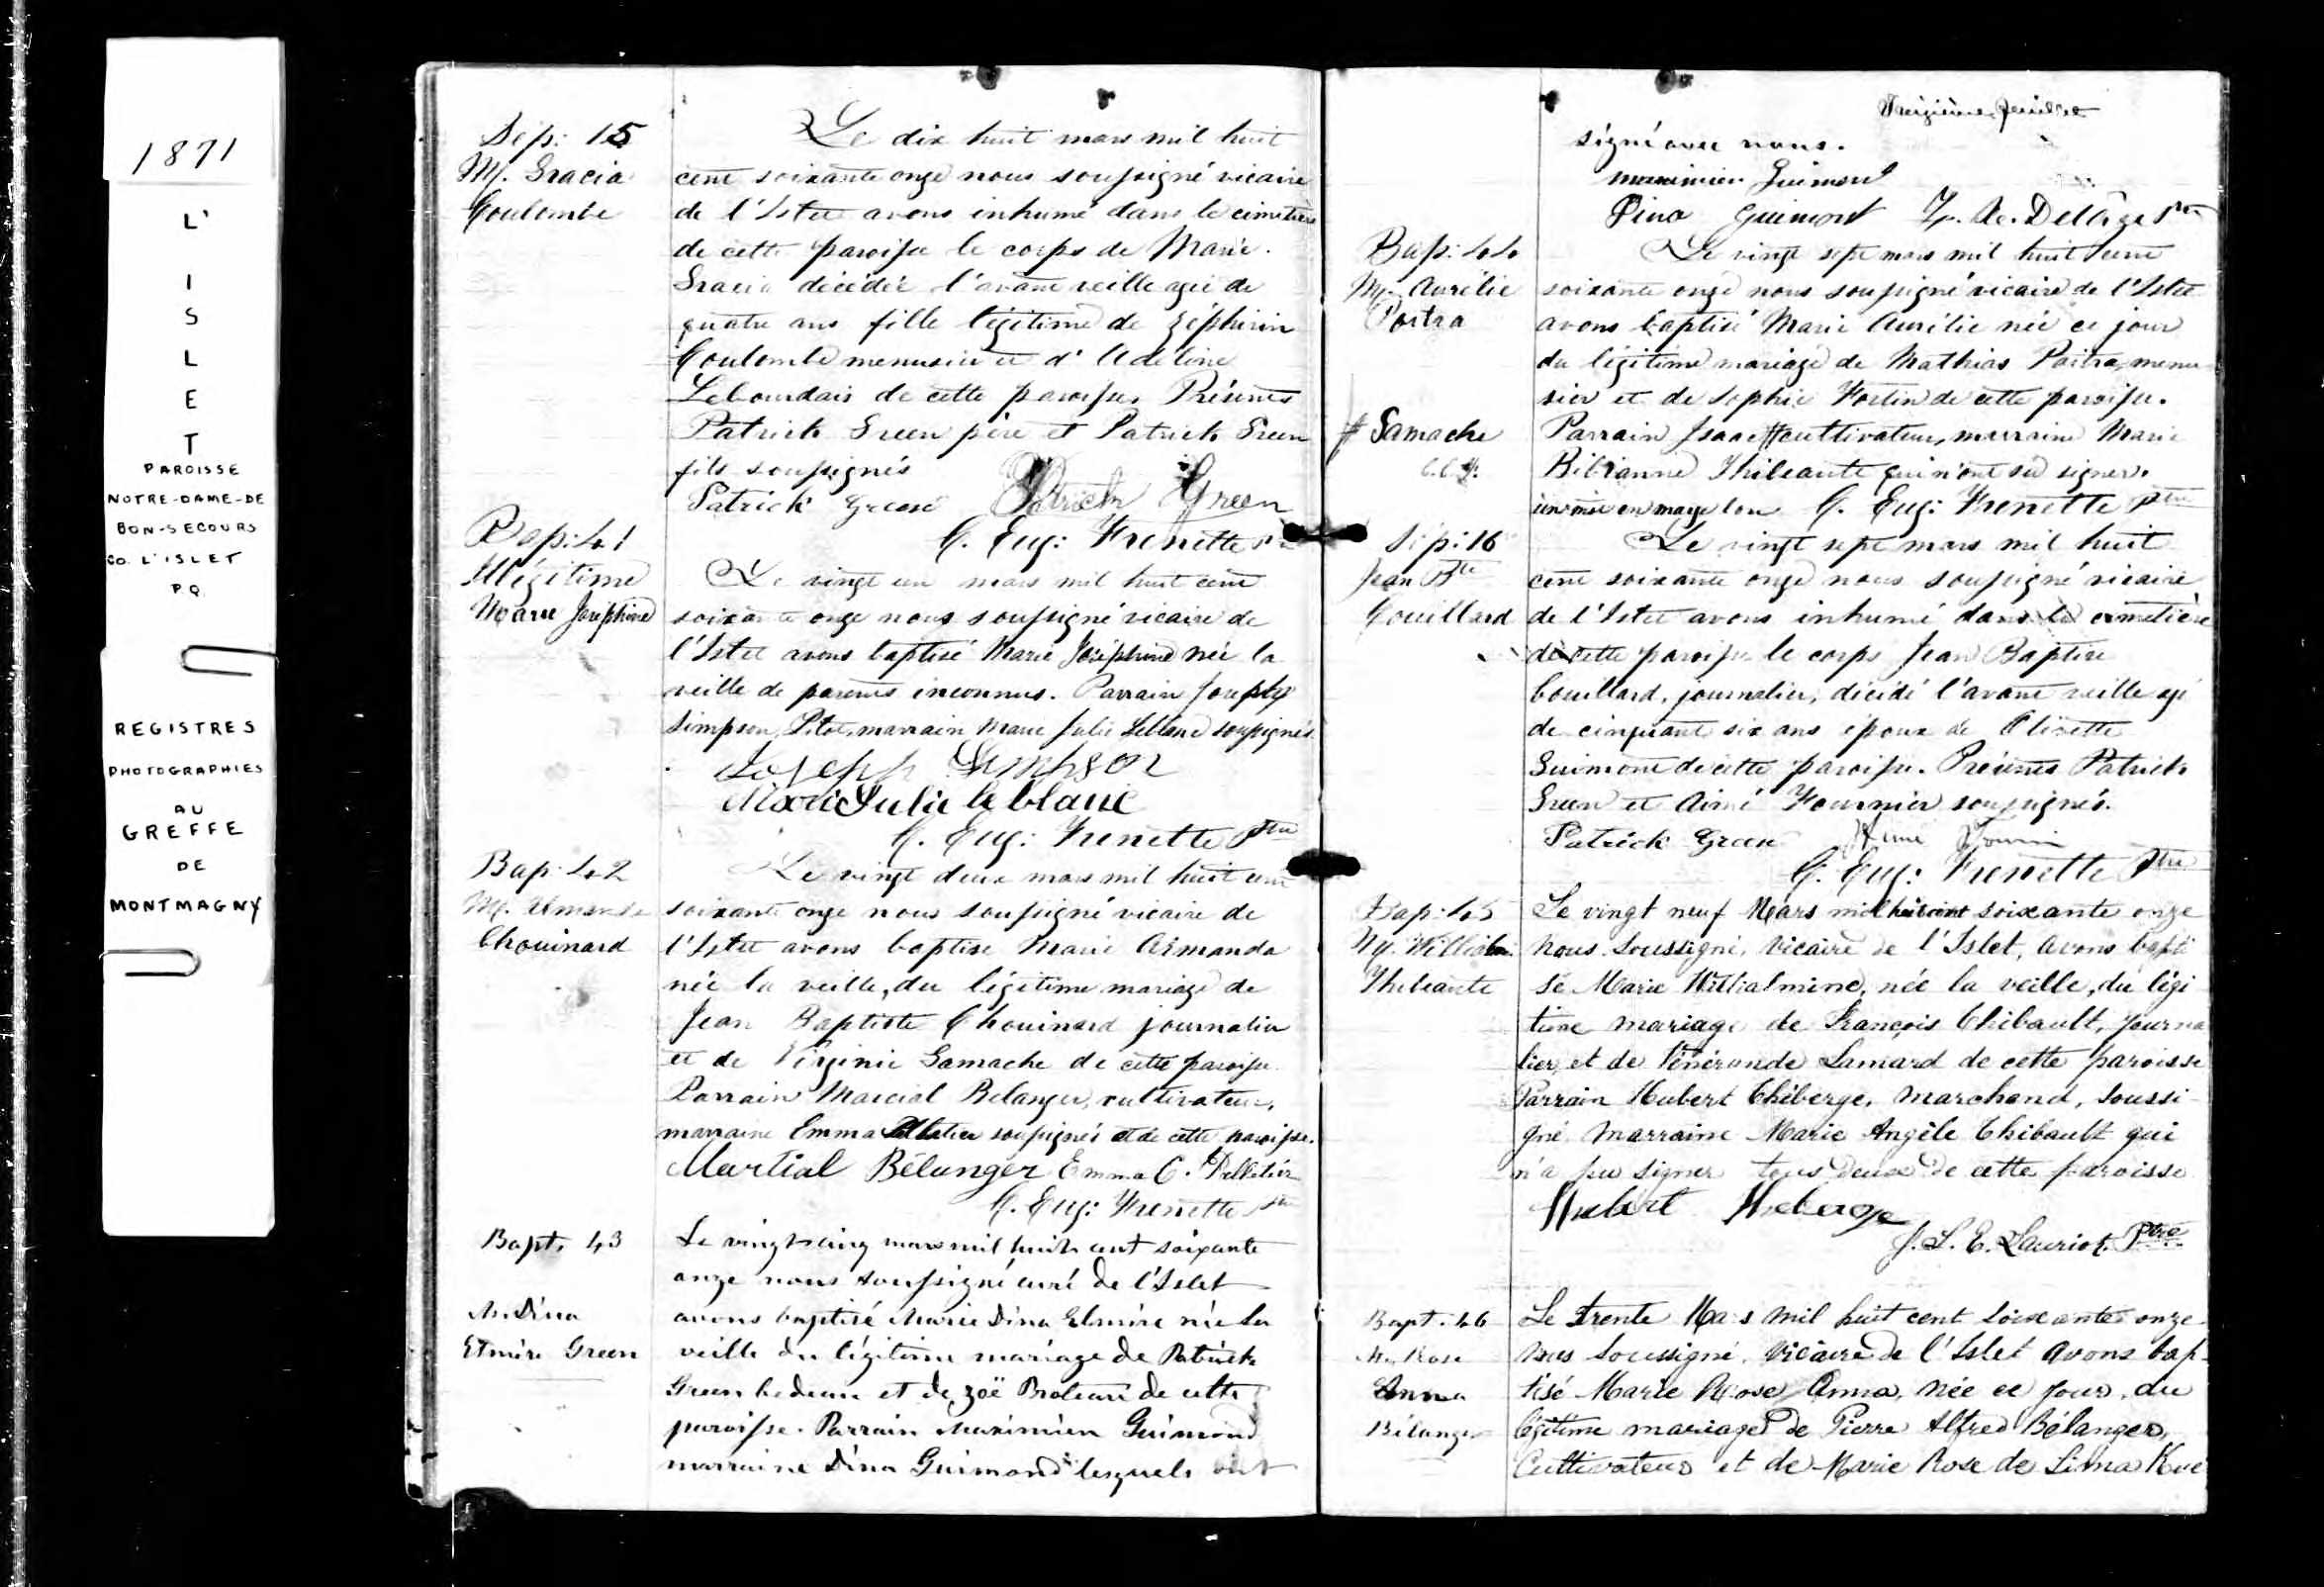 1871
L'
I
S
L
E
T
PAROISSE
NOTRE-DAME-DE
BON-SECOURS
CO. L'ISLET
P.Q.
REGISTRES
PHOTOGRAPHIES
AU
GREFFE
DE
MONTMAGNY
Sép: 15
M. Gracia
Coulombe
Le dix huit mars mil huit
cent soixante onze nous soussigné vicaire
de l'Islet avons inhumé dans le cimetière
de cette paroisse le corps de Marie
Gracia décédée l'avant veille agée de
quatre ans fille légitime de Zéphirin
Coulombe menuisier et d'Adeline
Lebourdais de cette paroisse. Présents
Patrick Green père et Patrick Green
fils soussignés
Patrick Green Patrick Green
C. Eug: Frenette Ptre
Bap: 41
Illégitime
Marie Joséphine
Le vingt un mars mil huit cent
soixante onze nous soussigné vicaire de
l'Islet avons baptisé Marie Joséphine née la
veille de parents inconnus. Parrain Joseph
Simpson, Pilote, marrain Marie Julie Leblanc soussignés
Joseph Simpson
Marie Julie leblanc
C. Eug: Frenette Ptre
Bap: 42
M. Armanda
Chouinard
Le vingt deux mars mil huit cent
soixante onze nous soussigné vicaire de
l'Islet avons baptisé Marie Armanda
née la veille, du légitime mariage de
Jean Baptiste Chouinard journalier
et de Virginie Gamache de cette paroisse
Parrain Marcial Belanger, cultivateur,
marraine Emma Pelletier soussignés et de cette paroisse.
Martial Bélanger Emma C. Pelletier
C. Eug: Frenette Ptre
Bapt. 43
M. Dina
Elmire Green
Le vingt cinq mars mil huit cent soixante
onze nous soussigné curé de l'Islet
avons baptisé Marie Dina Elmire née la
veille du légitime mariage de Patrick
Green bedeau et de Zoë Proteau de cette
paroisse. Parrain Maximien Guimond
marraine Dina Guimond lesquels ont
Treizième feuillet
signé avec nous.
maximien Guimond
Dina Guimont Delâge Ptre
Bap: 44
M. Aurélie
Poitra
Le vingt sept mars mil huit cent
soixante onze nous soussigné vicaire de l'Islet
avons baptisé Marie Aurélie née ce jour
du légitime mariage de Mathias Poitra, menui
sier et de Sophie Fortin de cette paroisse.
# Gamache
C.E.F.
Parrain Isaac # cultivateur, marraine Marie
Bibianne Thibeaute qui n'ont su signer.
un mis en marge bon C. Eug: Frenette Ptre
Sép: 16
Jean Bte
Couillard
Le vingt sept mars mil huit
cent soixante onze nous soussigné vicaire
de l'Islet avons inhumé dans le cimetière
de cette paroisse le corps Jean Baptise
Couillard, journalier, décédé l'avant veille agé
de cinquante six ans époux de Olivette
Guimont de cette paroisse. Présents Patrick
Green et Aimé Fournier soussignés.
Patrick Green
C. Eug: Frenette Ptre
Bap: 45
Thibeaute
Le vingt neuf Mars mil huit cent soixante onze
nous soussigné, vicaire de l'Islet, avons bapti
sé Marie Willialmine, née la veille, du légi
time mariage de François Thibault, journa
lier, et de Vénérande Lamard de cette paroisse
Parrain Hubert Théberge, marchand, soussi
gné, marraine Marie Angèle Thibault qui
n'a pu signer tous deux de cette paroisse
Hubert Theberge
J. L. E. Lauriot, Ptre
Bapt. 46
M. Rose
Anna
Bélanger
Le trente Mars mil huit cent soixante onze
nous soussigné, vicaire de l'Islet avons bap
tisé Marie Rose Anna, née ce jour, du
légitime mariage de Pierre Alfred Bélanger,
Cultivateur et de Marie Rose de Lima